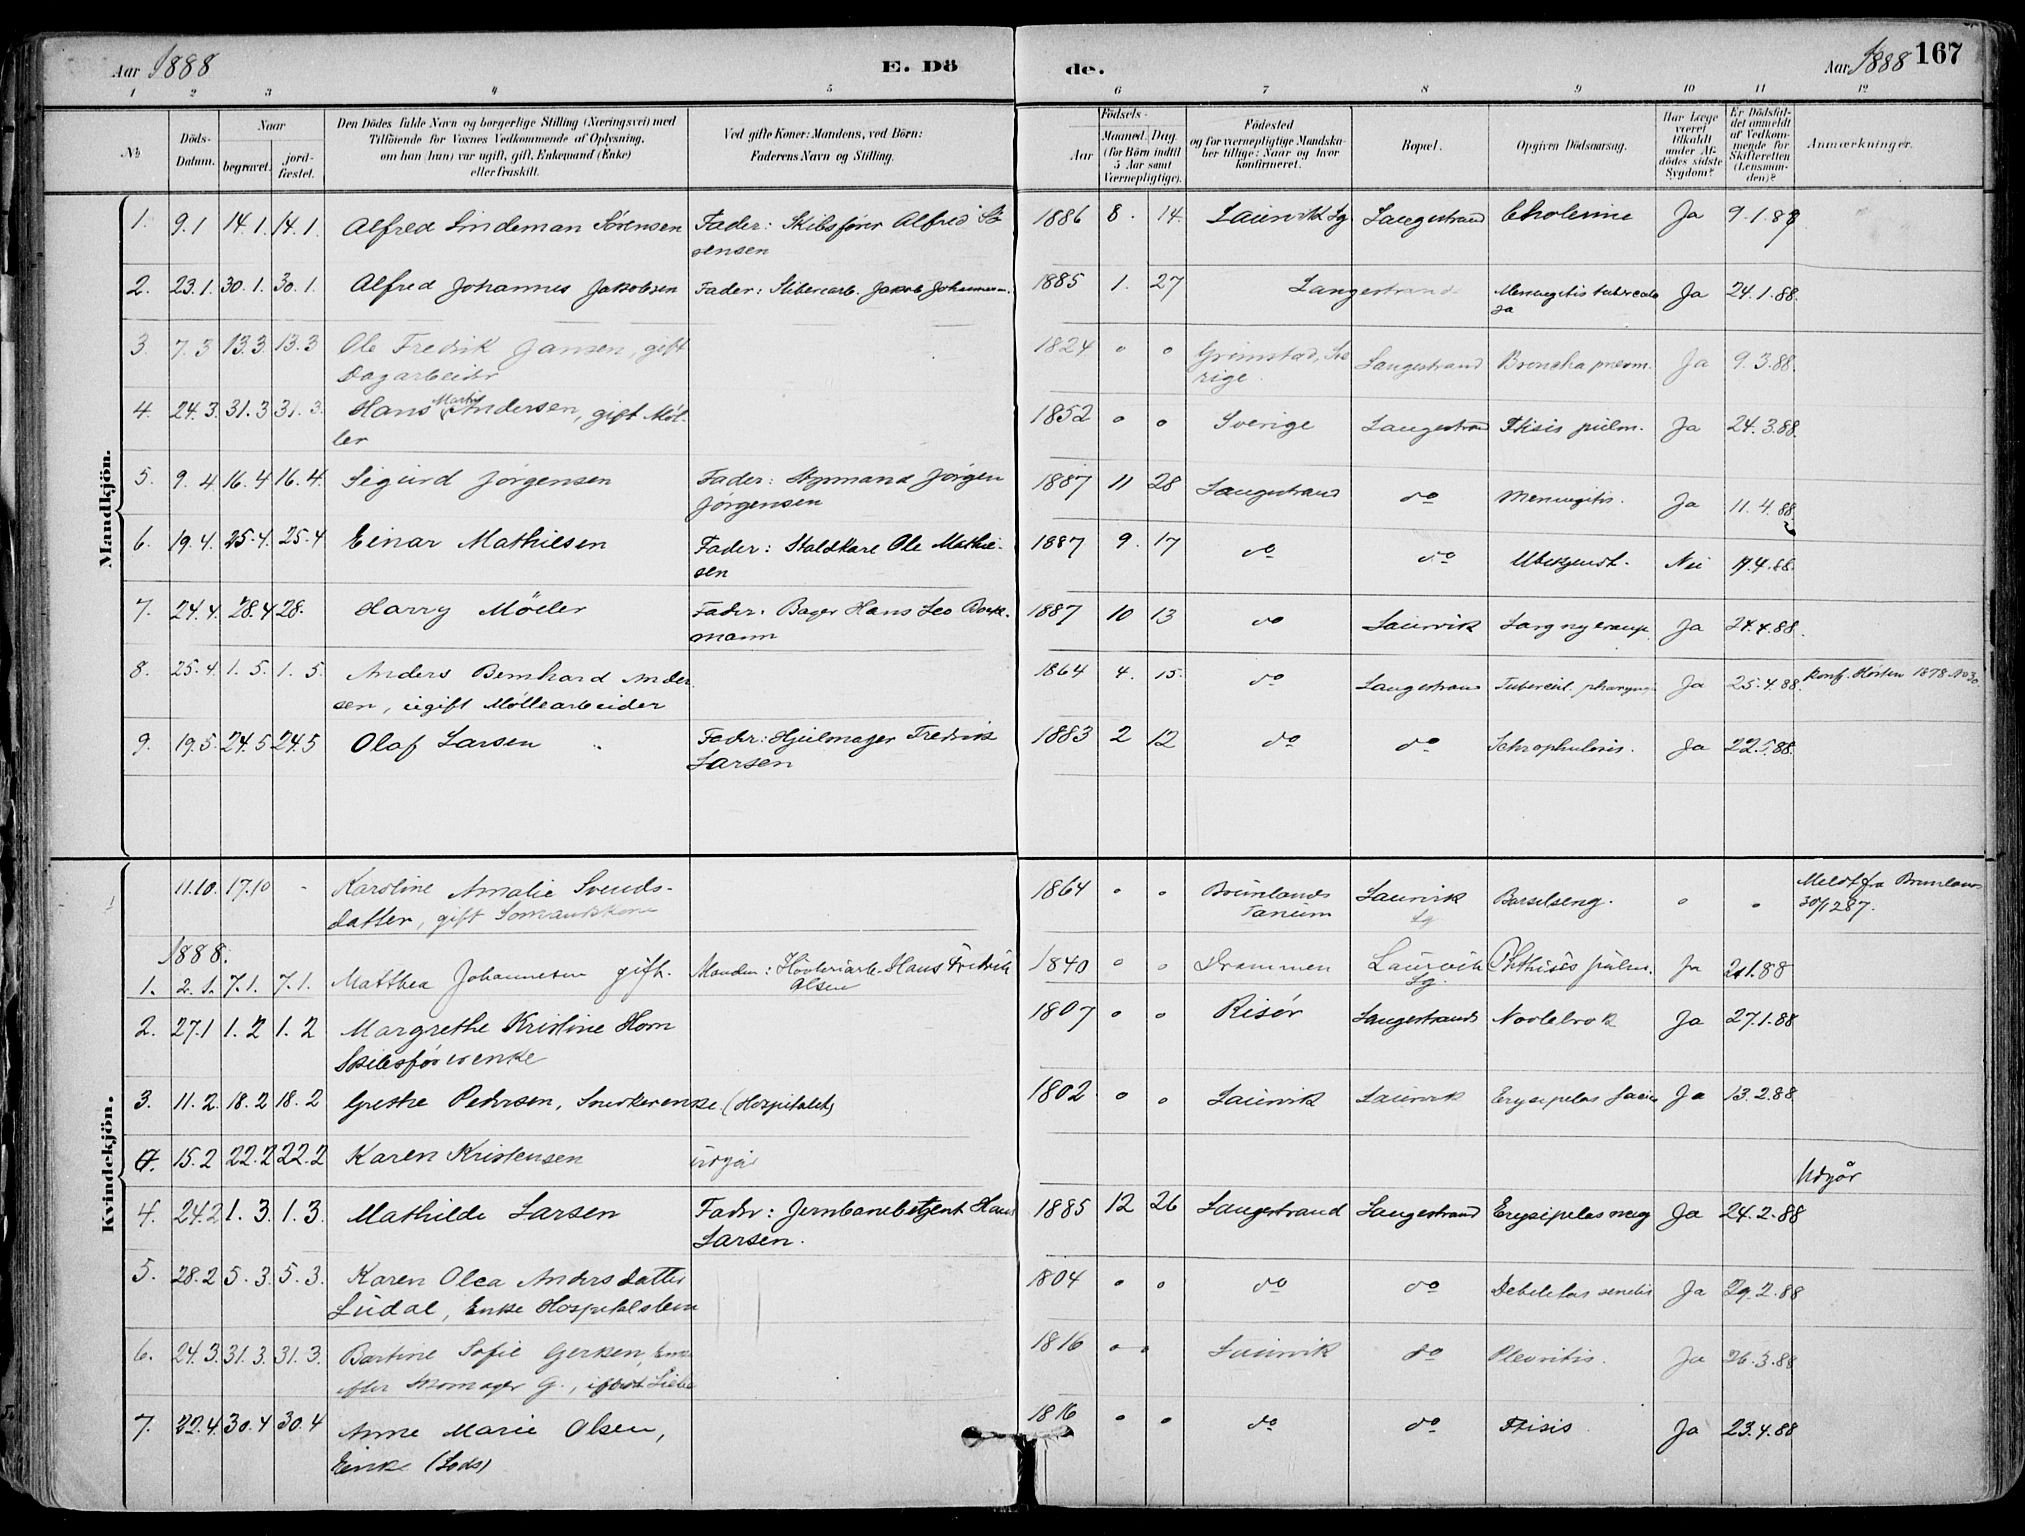 Aar 1888 E. Döde. Aar 1888 167
1 2 3 4 5 6 7 8 9 10 11 12
№
Döds-Datum.
Naar
begravet.
jord-fæstet.
Den Dödes fulde Navn og borgerlige Stilling (Næringsvei) med
Tilföiende for Voxnes Vedkommende af Oplysning,
om han (hun) var ugift, gift, Enkemand (Enke)
eller fraskilt.
Ved gifte Koner: Mandens, ved Börn:
Faderens Navn og Stilling.
Födsels-
Aar
Maaned. Dag.
(for Börn indtil
5 Aar samt
Værnepligtige).
Födested
og for værnepligtige Mandskaber tillige: Naar og hvor
konfirmeret.
Bopæl.
Opgiven Dödsaarsag.
Har Læge
været
tilkaldt
under Afdödes sidste
Sygdom?
Er Dödsfaldet anmeldt
af Vedkommende for
Skifteretten
(Lensmanden)?
Anmærkninger.
Mandkjön.
1. 9.1 14.1. 14.1. Alfred Lindeman Sörensen Fader: Skibsfører Alfred Sö 1886 8. 14. Laurvik Lg Langestrand Cholerine Ja 9.1.88
rensen
2. 23.1. 30.1. 30.1. Alfred Johannes Jakobsen Fader: Jakob 1885 1. 27 Langestrand Meningitis Ja 24.1.88.
3 7.3 13.3. 13.3 Ole Fredrik Jansen, gift 1824 o o Grimstad, Sve Langestrand Broncho pneum. Ja 9.3.88.
Dagarbeider rige.
4. 24.3. 31.3 31.3. Hans Martin Andersen, gift Møl- 1852 o o Sverige Langestrand Ftisis pulm. Ja 24.3.88.
ler
5. 9.4 16.4 16.4. Sigurd Jørgensen Fader: Styrmand Jørgen 1887 11 28 Langestrand do Meningitis. Ja 11.4.88
Jørgensen
6. 19.4. 25.4. 25.4 Einar Mathiesen Fader: Staldkarl Ole Mathie- 1887 9. 17 do do Ubekjendt. Nei
sen
7. 24.4. 28.4 28. Harry Møller Fader: Bager Hans Leo 1887 10 13 do Laurvik Ja 24.4.88.
mann
8. 25.4. 1.5. 1.5. Anders Bernhard Ander 1864 4. 15. do Langestrand Tubercul. Ja 25.4.88. Konf. Horten 1878 No 30
sen, ugift Møllearbeider
9. 19.5. 24.5 24.5 Olaf Larsen Fader: Hjulmager Fredrik 1883 2 12 do do Schrophulosis. Ja 22.5.88.
Larsen
Kvindekjön.
11.10. 17.10 - Karoline Amalie Svends- 1864 o o Brunlands Laurvik Barselseng. o o Meldt fra Brunlanes
datter, gift Sømandskone Tanum Lg. 30/12 87.
1888.
1. 2.1. 7.1. 7.1. Matthea Johannesen gift. Manden: Høvleriarb. Hans Fredrik 1840 o o Drammen Laurvik Phthisis pulm. Ja 2.1.88
Olsen Lg.
2. 27.1 1.2 1.2 Margrethe Kristine Horn 1807 o o Risør Langestrand Ja 27.1.88
Skibsførerenke
3. 11.2. 18.2 18.2 Grethe Pedersen, Snedkerenke (Hospitalet) 1802 o o Laurvik Laurvik Erysipelas faciei Ja 13.2.88
15.2 22.2 22.2 Karen Kristensen udgår Udgår
4. 24.2 1.3. 1.3. Mathilde Larsen Fader: Jernbanebetjent Hans 1885 12 26 Langestrand Langestrand Erysipelas Ja 24.2.88
Larsen.
5. 28.2 5.3. 5.3. Karen Olea Andersdatter 1804 o o do do Debilitas senilis Ja 29.2.88
Ludal, Enke Hospitalslem
6. 24.3. 31.3. 31.3. Bartine Sofie Gerken, Enke 1816 o o Laurvik do Pleuritis. Ja 26.3.88
efter Skomager G.,
7. 22.4. 30.4 30.4 Anne Marie Olsen, 1816 o o do do Ftisis Ja 23.4.88
Enke (Lods)